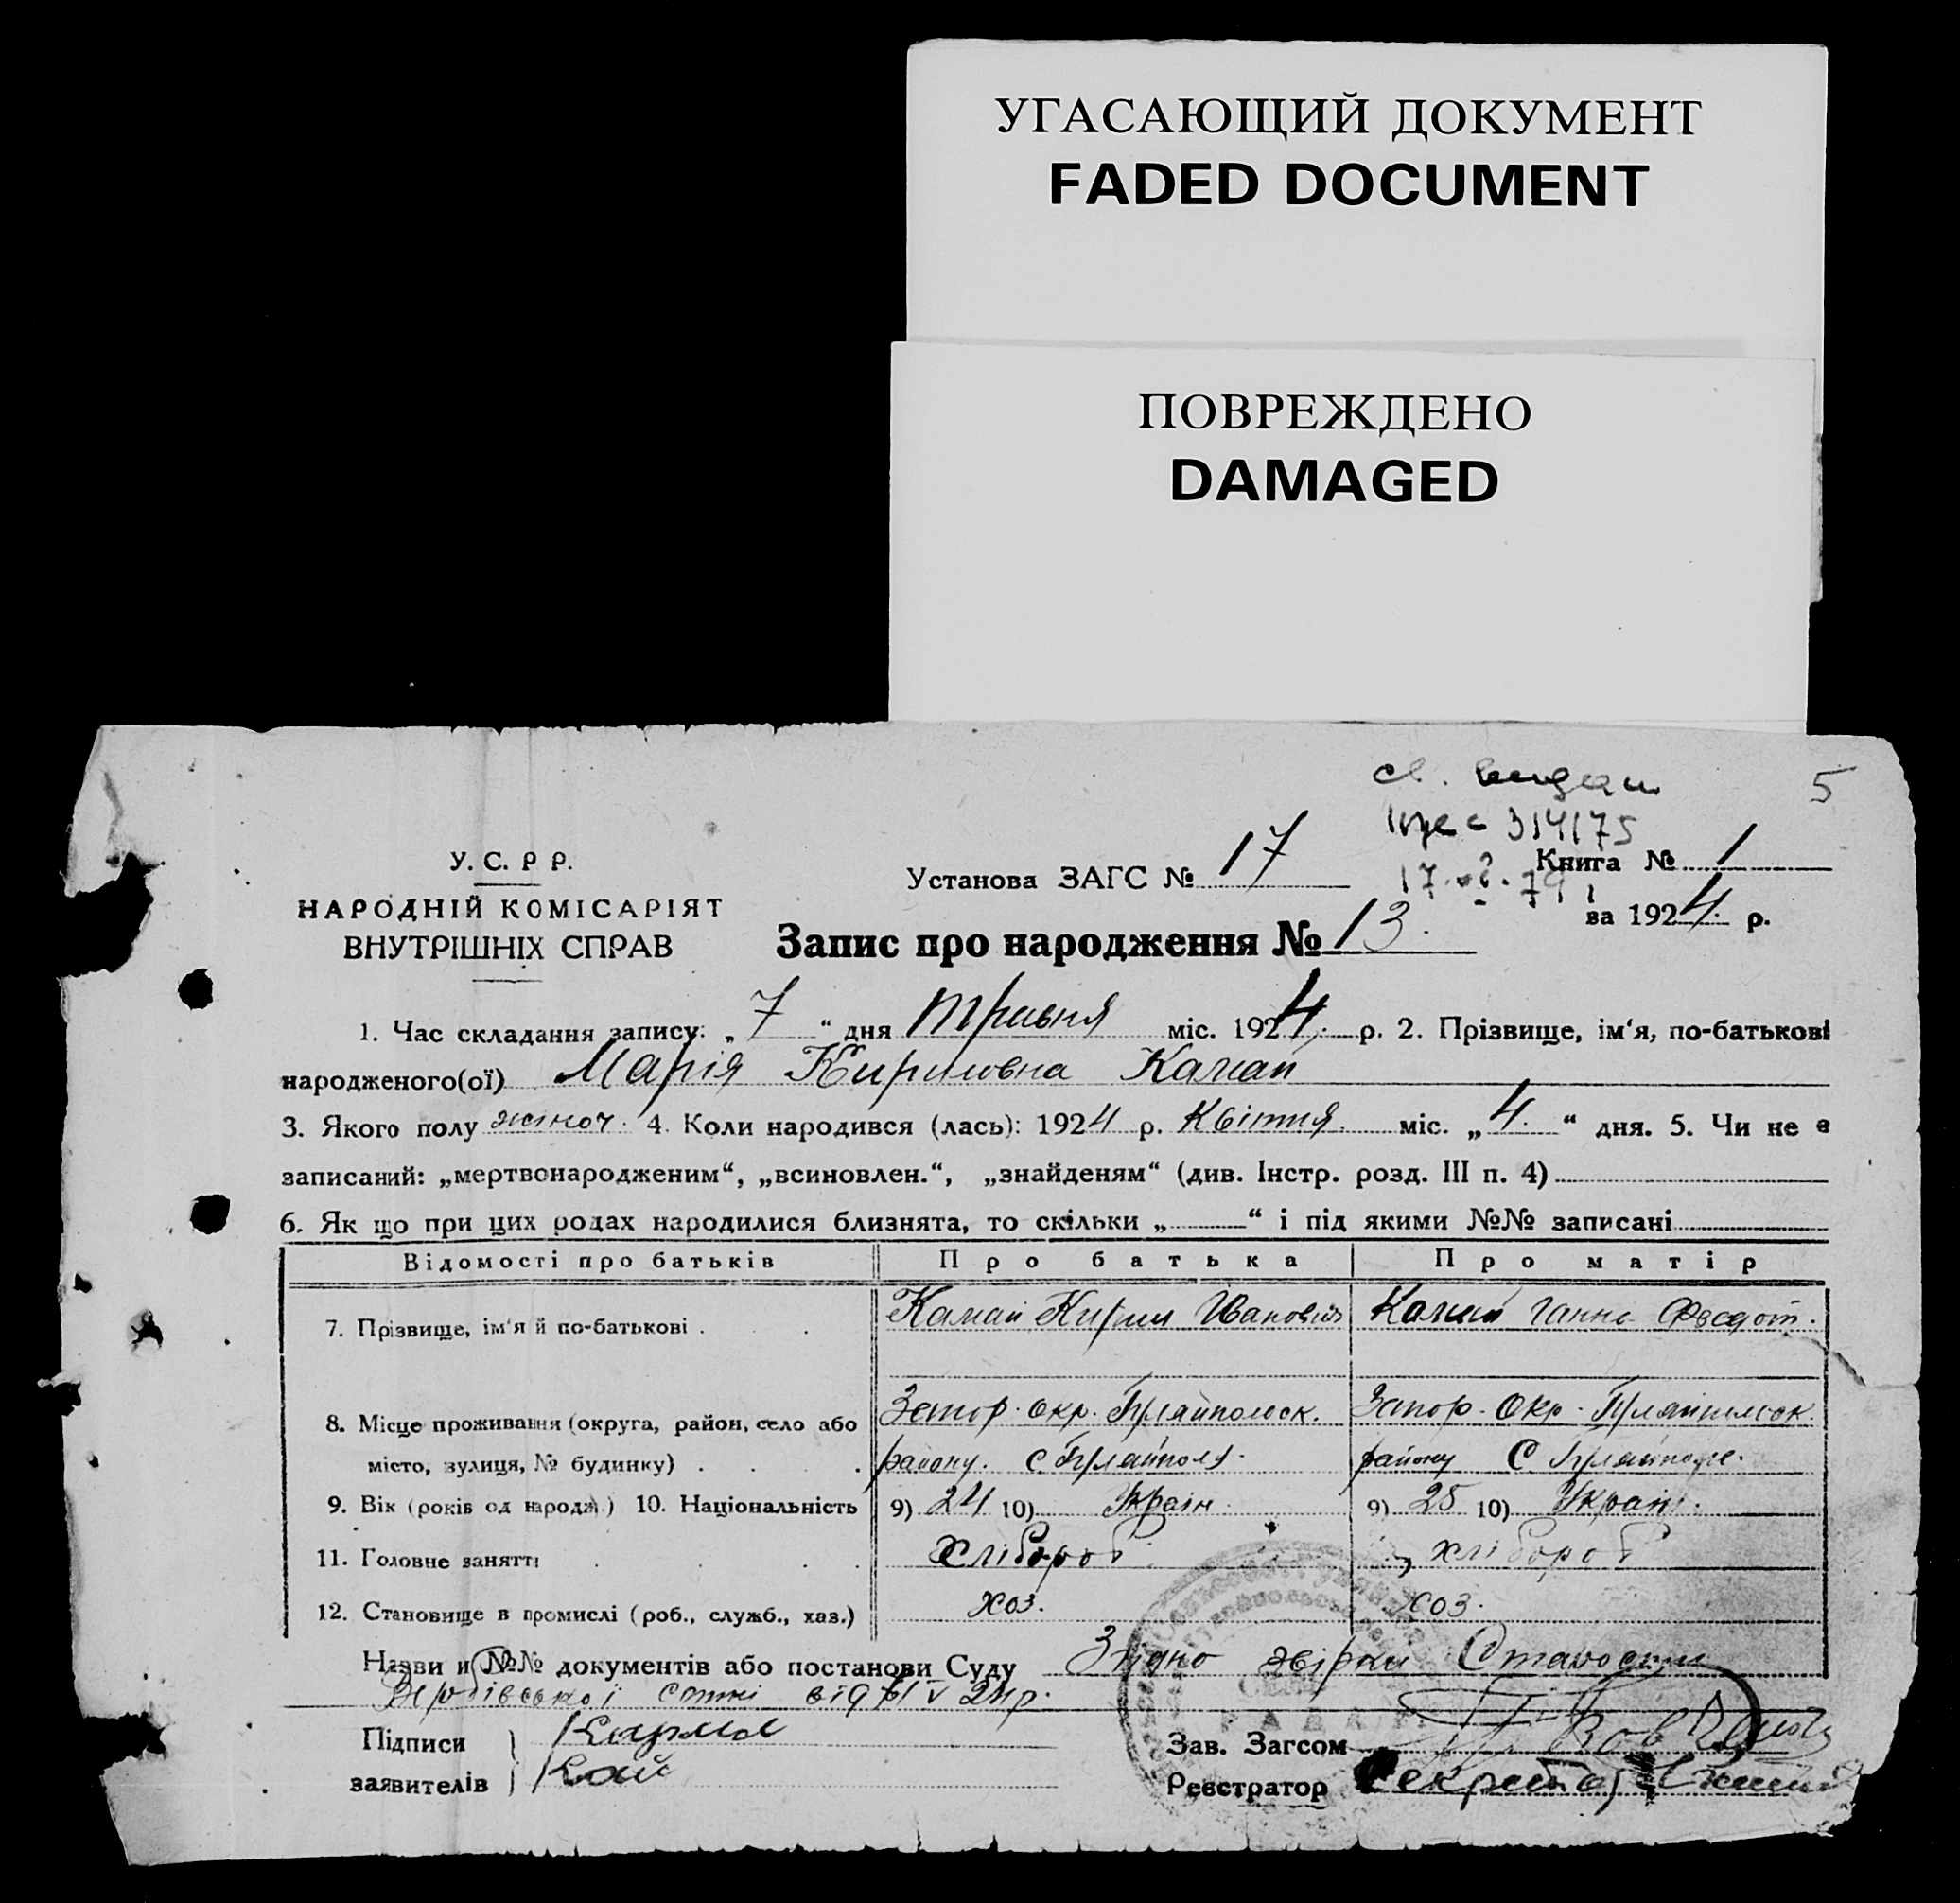 УГАСАЮЩИЙ ДОКУМЕНТ
FADED DOCUMENT
ПОВРЕЖДЕНО
DAMAGED
5
314175
У. С. Р Р.
НАРОДНІЙ КОМІСАРІЯТ
ВНУТРІШНІХ СПРАВ
Установа ЗАГС № 17
Книга № 1
за 1924 р.
Запис про народження № 13.
1. Час складання запису: „ 7 “ дня травня міс. 1924. р. 2. Прізвище, ім‘я, по-батькові
народженого(ої) Марія Кириловна Камай
3. Якого полу жіноч. 4. Коли народився (лась): 1924 р. Квітня. міс. „ 4. “ дня. 5. Чи не є
записаний: „мертвонародженим“, „всиновлен.“, „знайденям“ (див. Інстр. розд. III п. 4)
6. Як що при цих родах народилися близнята, то скільки „ “ і під якими №№ записані
Відомості про батьків Про батька Про матір
7. Прізвище, ім‘я й по-батькові . . . Камай Кирил Іванович Камай Ганна Федот.
8. Місце проживання (округа, район, село або Запор. окр. Гуляйпольск. Запор. Окр. Гуляйпольск.
місто, зулиця, № будинку) . . . . району. с. Гуляйполя. району С.
9. Вік (років од народж.) 10. Національність 9) 24 10) Україн. 9) 25 10) Україн.
11. Головне заняття . . . Хлібороб хлібороб
12. Становище в промислі (роб., служб., хаз.) хоз. хоз.
Назви й №№ документів або постанови Суду Згідно Старости
сотні від
Підписи Кирил
заявителів Кай
РАДА
Зав. Загсом
Реєстратор Секретар